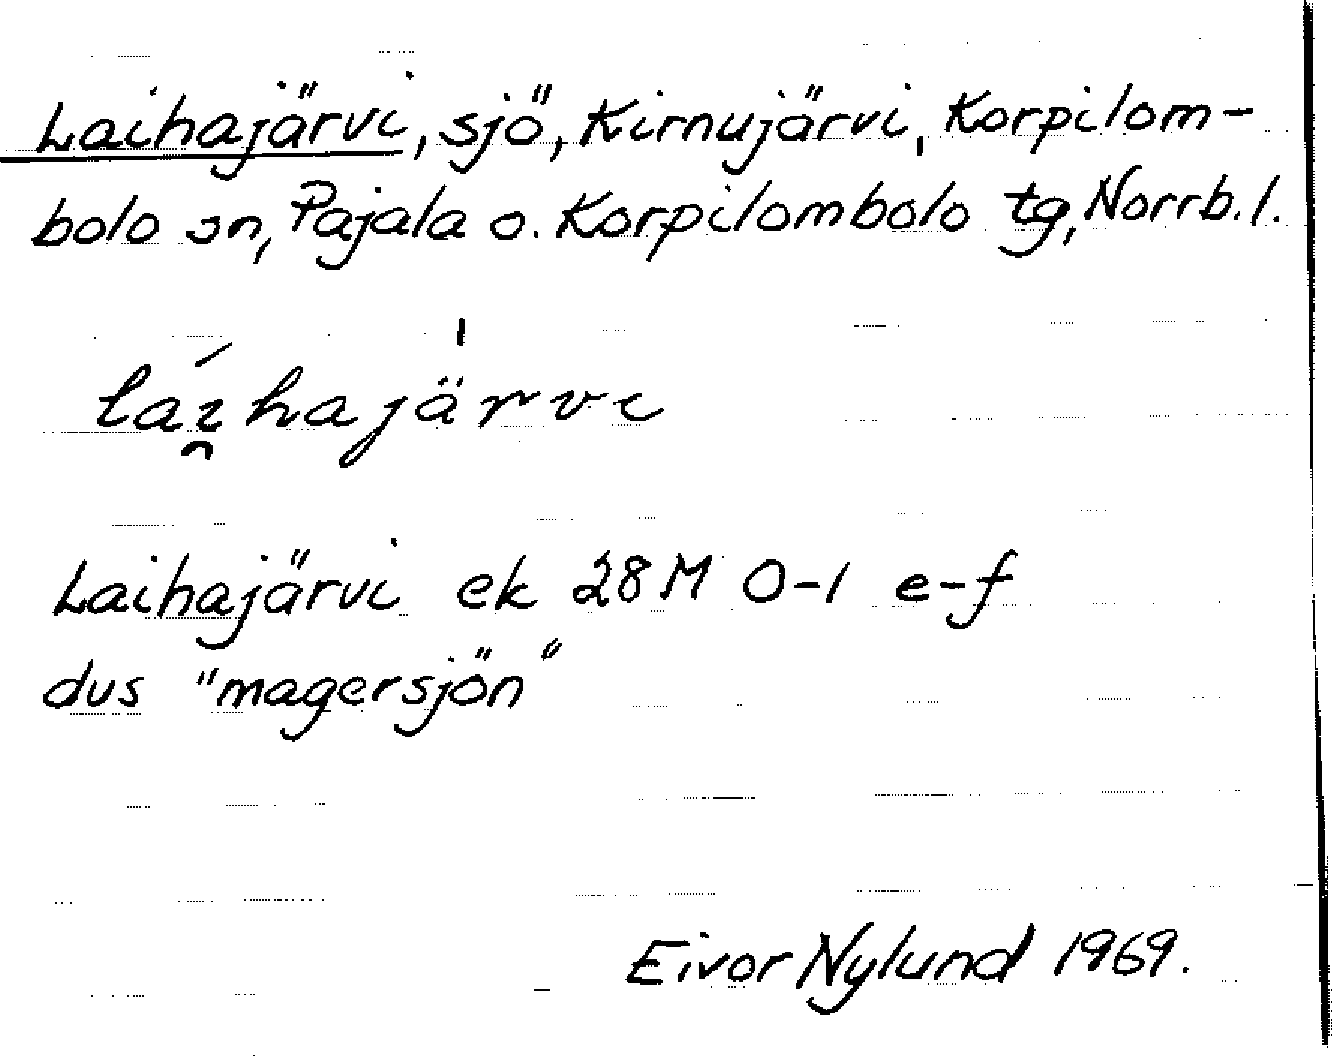 Laihajärvi, sjö, Kirnujärvi, Korpilom-
bolo sn, Pajala o. Korpilombolo tg, Norrb. l.
lái̯hajä̍rvi
Laihajärvi ek 28 M 0-1 e-f
dvs "magersjön"
Eivor Nylund 1969.